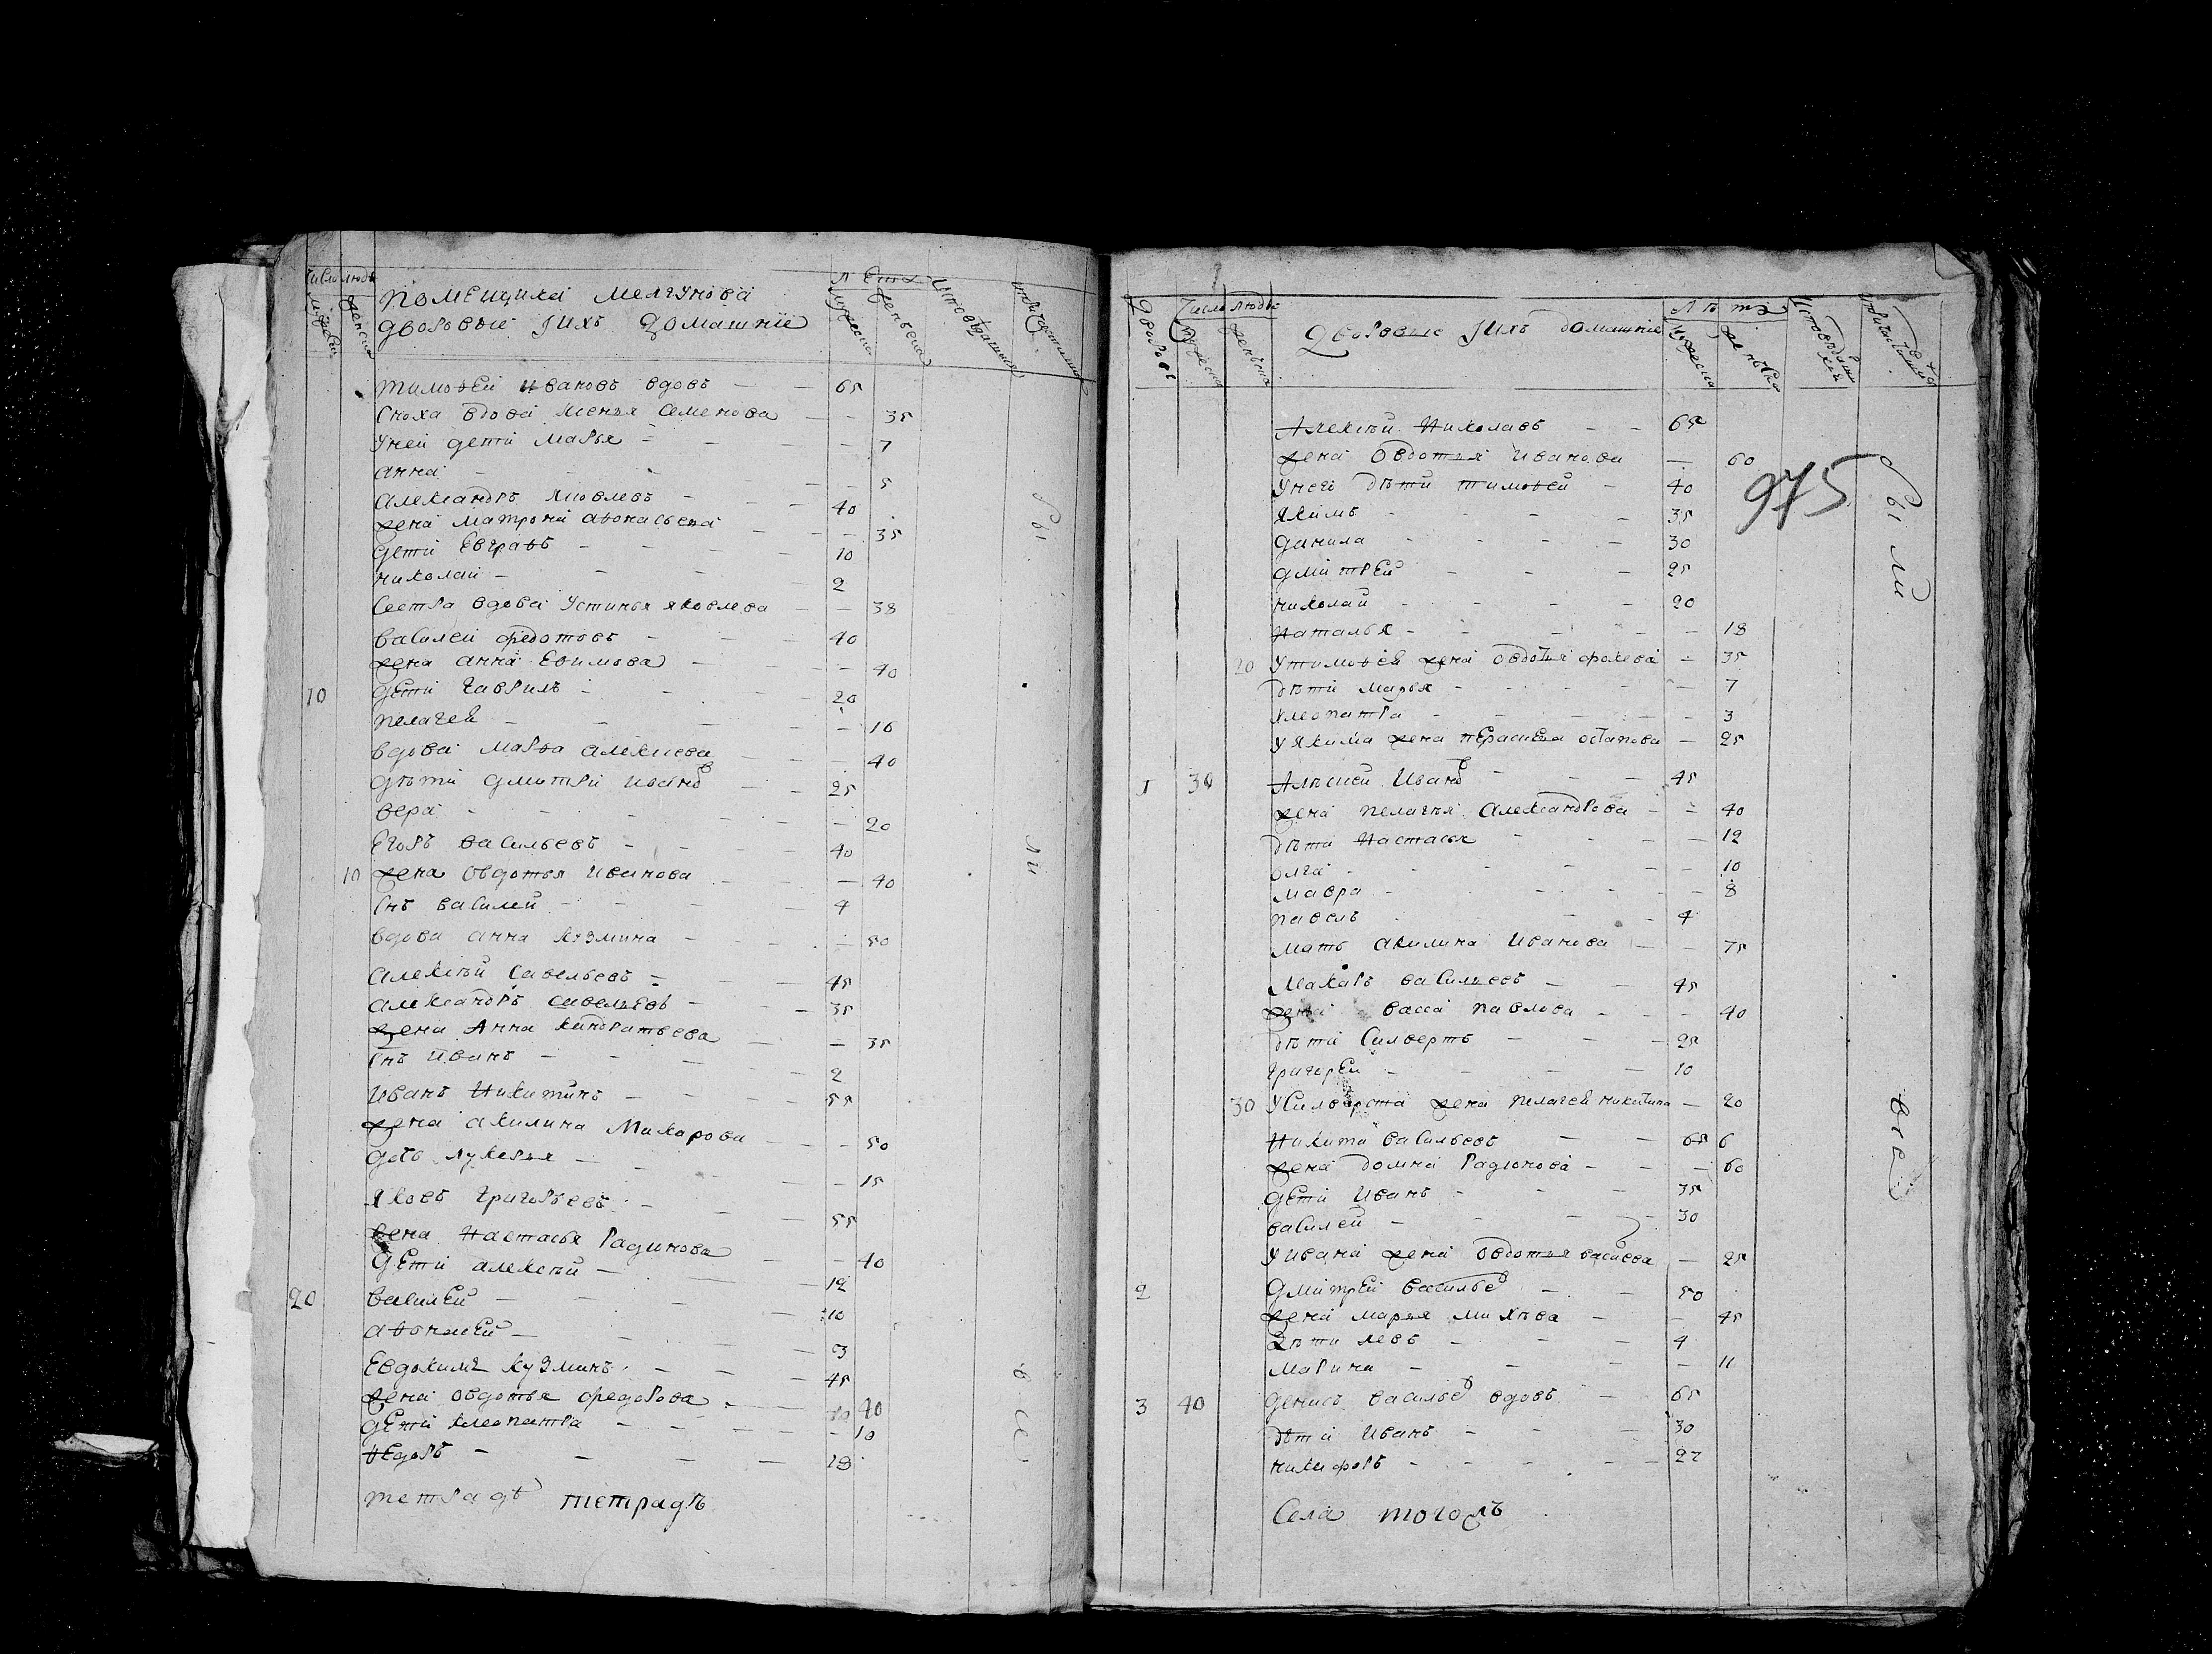 число людъ
мужеска
женска
помещика мелгунова
дворовые ихъ домашніе
лета
мужеска
женьска
тимоѳей ивановъ вдовъ — — 65
сноха вдова ксенья семенова — — 35
унеи дети марья — — 7
анна — — 5
александръ яковлевъ — — 40
жена матрона аѳонасьева — — 35
дети евграѳъ — — 10
николаи — — 2
сестра вдова устинья яковлева — — 38
василеи федотовъ — 40
жена анна еѳимова — — 40
10 дети гаврилъ — — 20
пелагея — — 16
вдова марѳа алексиева — — 40
дѣти дмитри ивановъ — — 25
вера — — 20
егоръ васильевъ — — 40
10 жена овдотья иванова — — 40
снъ василей — — 4
вдова анна кузмина — — 50
алексѣй савельевъ — — 45
александръ савельевъ — — 35
жена анна кандратьева — — 35
снъ иванъ — — 2
иванъ никитинъ — — 55
жена акилина макарова — — 50
дочь лукерья — — 15
яковъ григорьевъ — — 55
жена настасья радинова — — 40
дети алексѣй — — 12
20 василей — — 10
аѳонасей — — 3
евдокимъ кузминъ — — 45
жена овдотья федорова — — 40
дети клеопатра — — 10
ѳедоръ — — 18
тетрадь тетрадь
были
все
дворовъ
число людъ
мужеска
женска
дворовые ихъ домашніе
лѣтъ
мужеска
женьска
алексѣй николаевъ — — 65
жена овдотья иванова — 60
унего дѣти тимоѳей — 40
якимъ — — 35
данила — — 30
дмитрей — — 25
николай — — 20
наталья — — 18
20 утимоѳея жена овдотья фокева — 35
дѣти марья — — 7
клеопатра — — 3
уякима жена герасиева остапова — 25
1 30 алѣксей ивановъ — — 45
жена пелагея александрова — — 40
дѣти настасья — — 12
олга — — 10
мавра — — 8
павелъ — — 4
мать акилина иванова — — 75
макаръ васильевъ — — 45
жена васса павлова — — 40
дѣти силвертъ — — 25
григорей — — 10
30 усилверста жена пелагея никитина — 20
никита васильевъ — — 65 6
жена домна радионова — — 60
дети иванъ — — 35
василей — — 30
уивана жена овдотья васиева — 25
2 дмитрей васильевъ — — 50
жена марья михѣва — — 45
дѣти левъ — — 4
марина — — 11
3 40 денисъ васильевъ вдовъ — 65
дѣти иванъ — — 30
никифоръ — — 27
села тогожъ
975
были
все